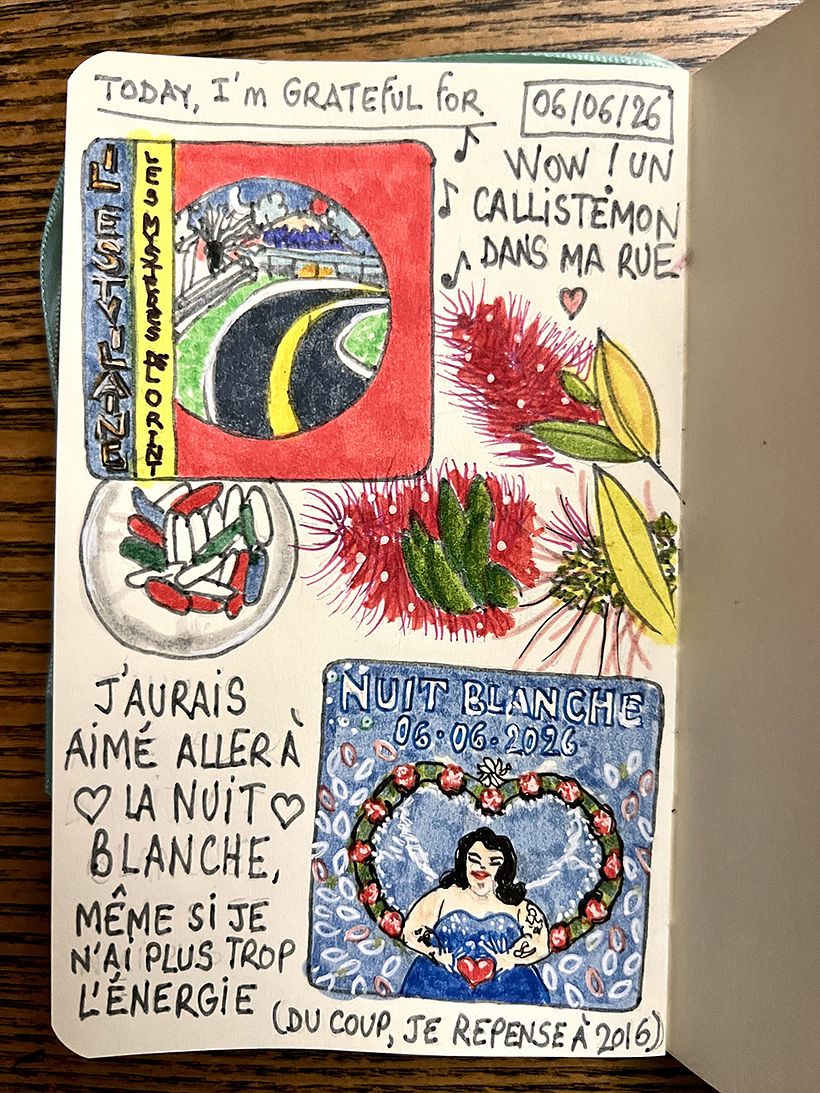 TODAY, I'm GRATEFUL FOR
06/06/26
IL EST VILAINE
LES MYSTÈRES DE LORIENT
WOW ! UN
CALLISTÉMON
DANS MA RUE
J'AURAIS
AIMÉ ALLER À
LA NUIT
BLANCHE,
MÊME SI JE
N'AI PLUS TROP
L'ÉNERGIE
(DU COUP, JE REPENSE À 2016)
NUIT BLANCHE
06.06.2026